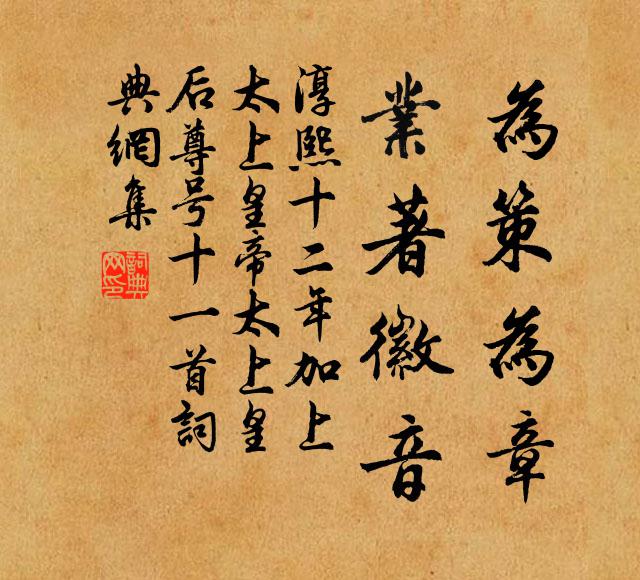 為策為章
業著徽音
淳熙十二年加上
太上皇帝太上皇
后尊号十一首詞
典網集
詞典網印